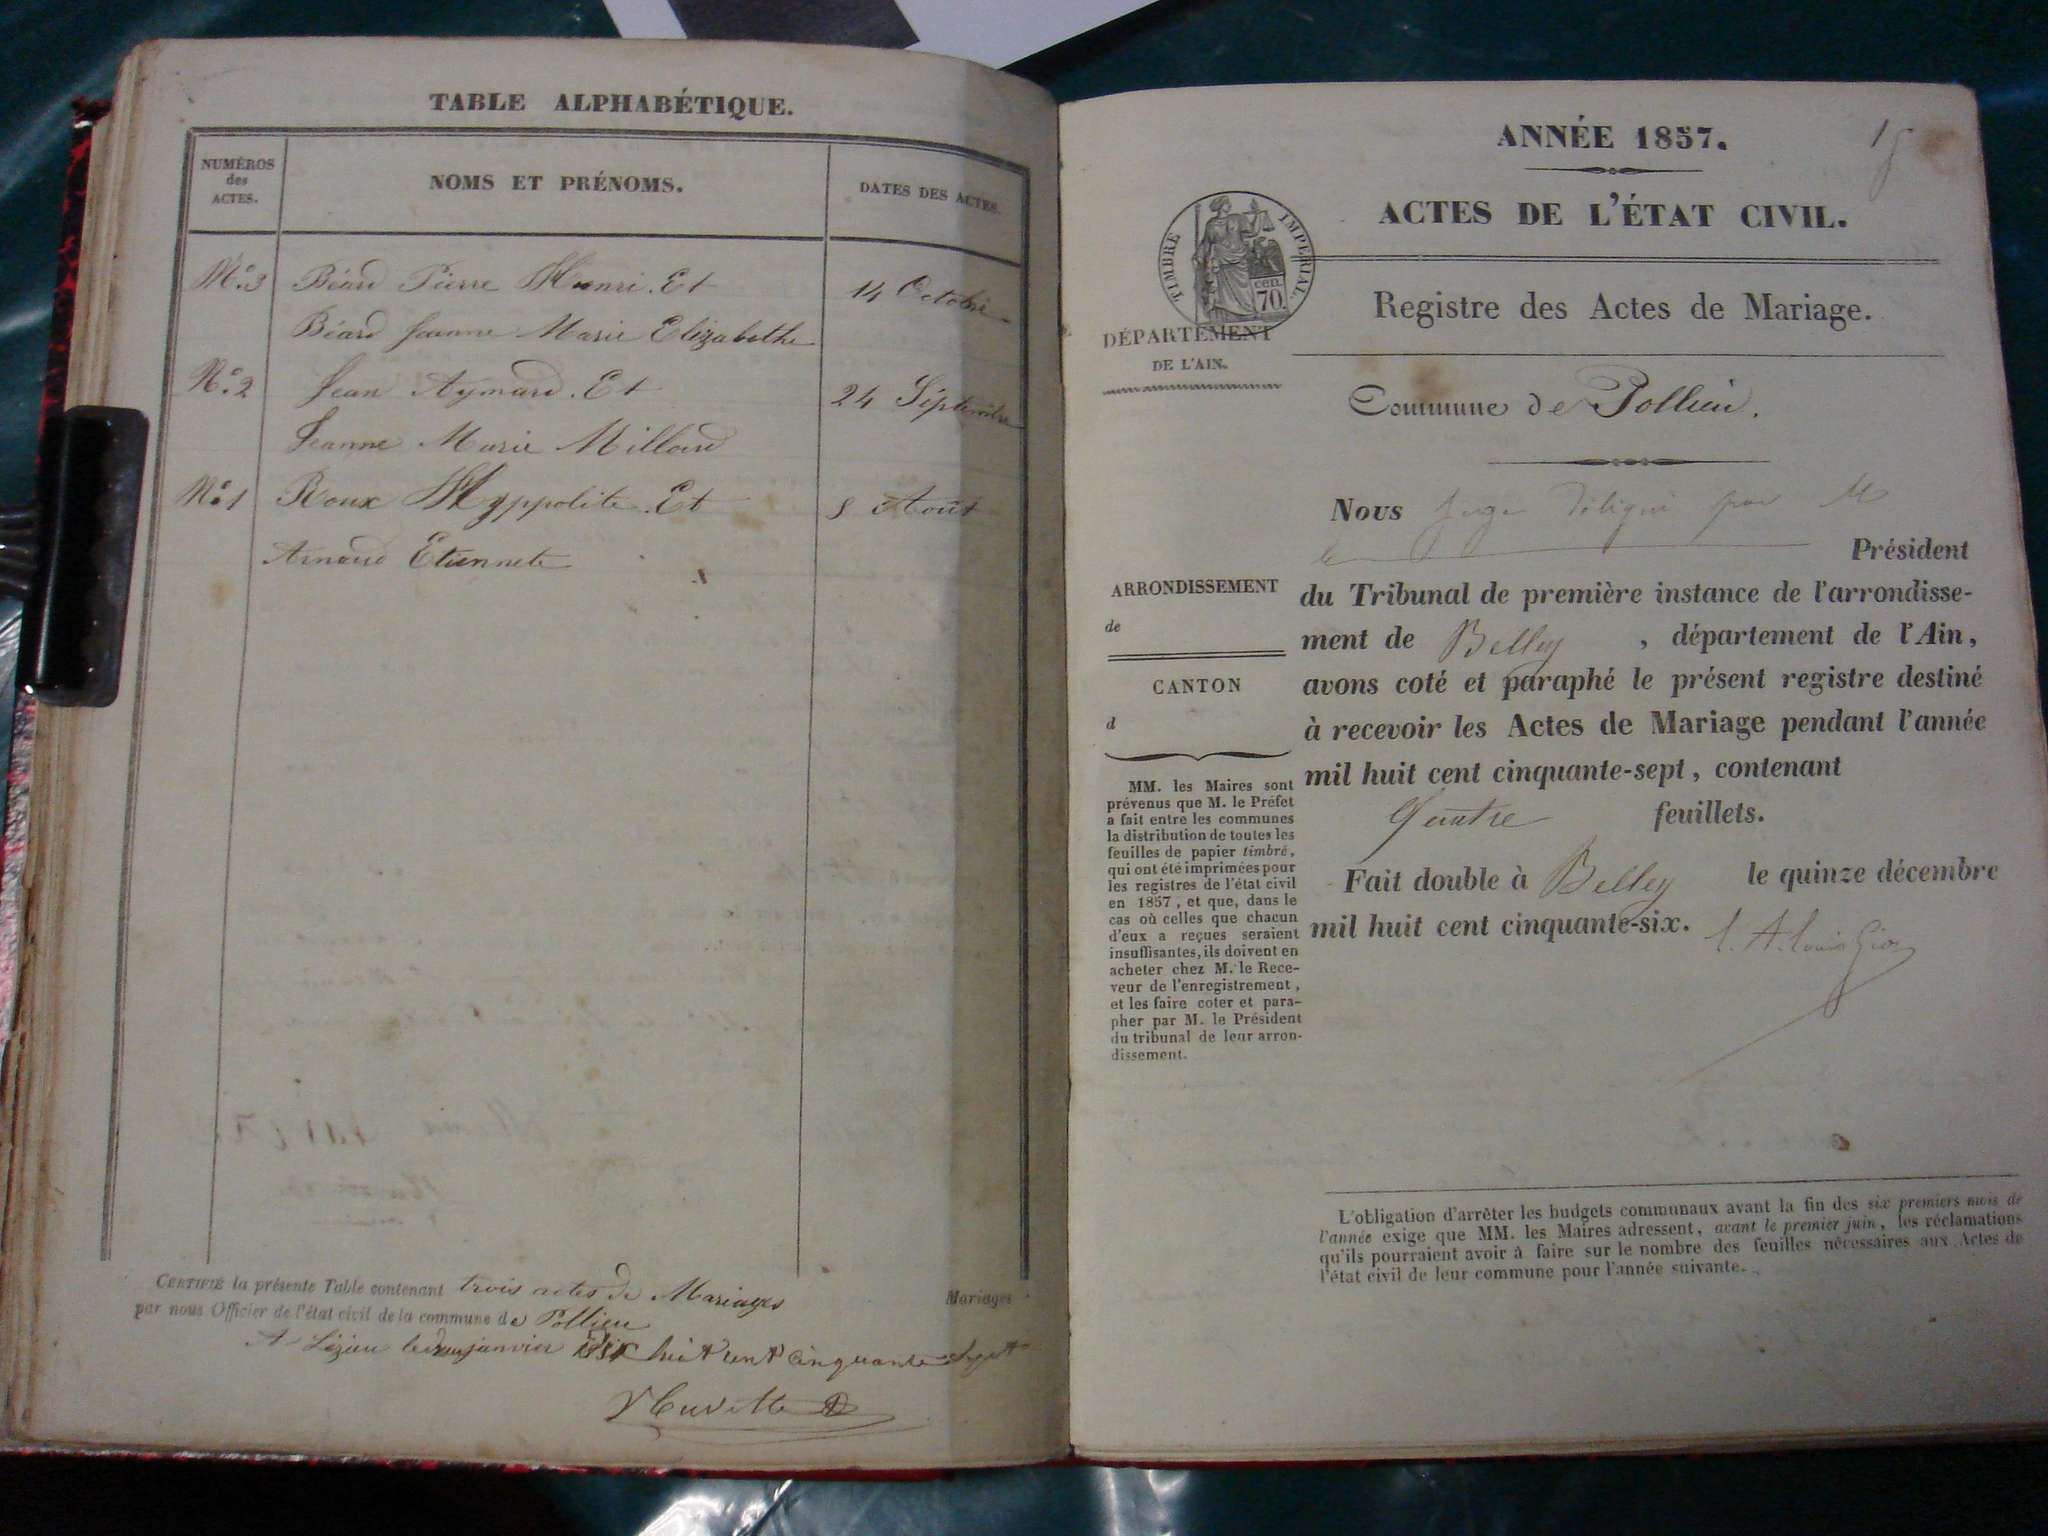 TABLE ALPHABÉTIQUE.
NUMÉROS
des
ACTES.
NOMS ET PRÉNOMS.
DATES DES ACTES.
N.º 3 Béard Pierre Henri. Et 14 Octobre
Béard Jeanne Marie Elizabethe
N.º 2 Jean Aymard. Et 24 Séptembre
Jeanne Marie Milland
N.º 1 Roux Hyppolite. Et 8 Août
Arnaud Etiennete
CERTIFIÉ la présente Table contenant trois actes de Mariages Mariages
par nous Officier de l'état civil de la commune de Pollieu
A le janvier huit cent cinquante sept
ANNÉE 1857.
ACTES DE L'ÉTAT CIVIL.
TIMBRE IMPERIAL.
cen.
70
DÉPARTEMENT
DE L'AIN.
Registre des Actes de Mariage.
Commune de Pollieu.
Nous Juge délégué par M
le Président
du Tribunal de première instance de l'arrondisse-
ment de Belley, département de l'Ain,
avons coté et paraphé le présent registre destiné
à recevoir les Actes de Mariage pendant l'année
mil huit cent cinquante-sept, contenant
Quatre feuillets.
Fait double à Belley le quinze décembre
mil huit cent cinquante-six.
ARRONDISSEMENT
de
CANTON
d
MM. les Maires sont
prévenus que M. le Préfet
a fait entre les communes
la distribution de toutes les
feuilles de papier timbré,
qui ont été imprimées pour
les registres de l'état civil
en 1857, et que, dans le
cas où celles que chacun
d'eux a reçues seraient
insuffisantes, ils doivent en
acheter chez M. le Rece-
veur de l'enregistrement,
et les faire coter et para-
pher par M. le Président
du tribunal de leur arron-
dissement.
L'obligation d'arrêter les budgets communaux avant la fin des six premiers mois de
l'année exige que MM. les Maires adressent, avant le premier juin, les réclamations
qu'ils pourraient avoir à faire sur le nombre des feuilles nécessaires aux Actes de
l'état civil de leur commune pour l'année suivante.